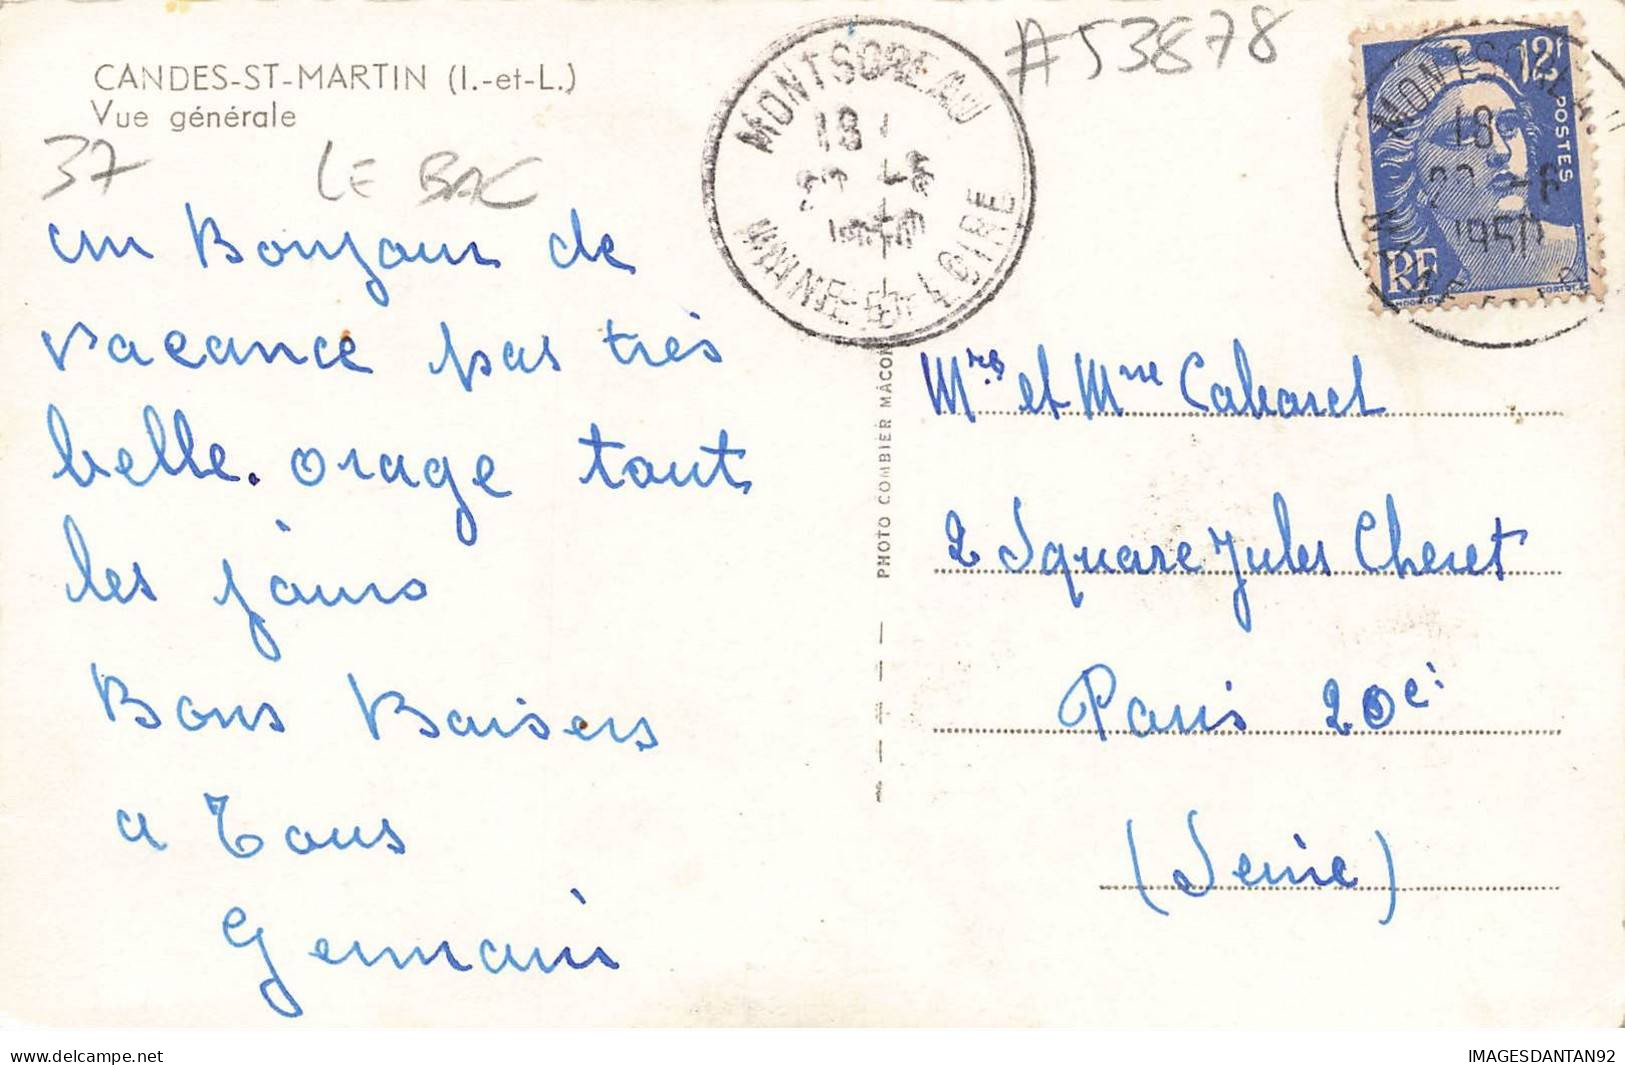 CANDES-ST-MARTIN (I.-et-L.)
Vue générale
37 LE BAC
A53878
MONTSOREAU
18
1950
MAINE-ET-LOIRE
12f
POSTES
RF
MONTSOREAU
18
1950
un Bonjour de
vacance pas très
belle. orage tout
les jours
Bons Baisers
a Tous
Germain
PHOTO COMBIER MÂCON
Mrs et Mme Cabaret
2 Square Jules Cheret
Paris 20e
(Seine)
delcampe.net
IMAGESDANTAN92